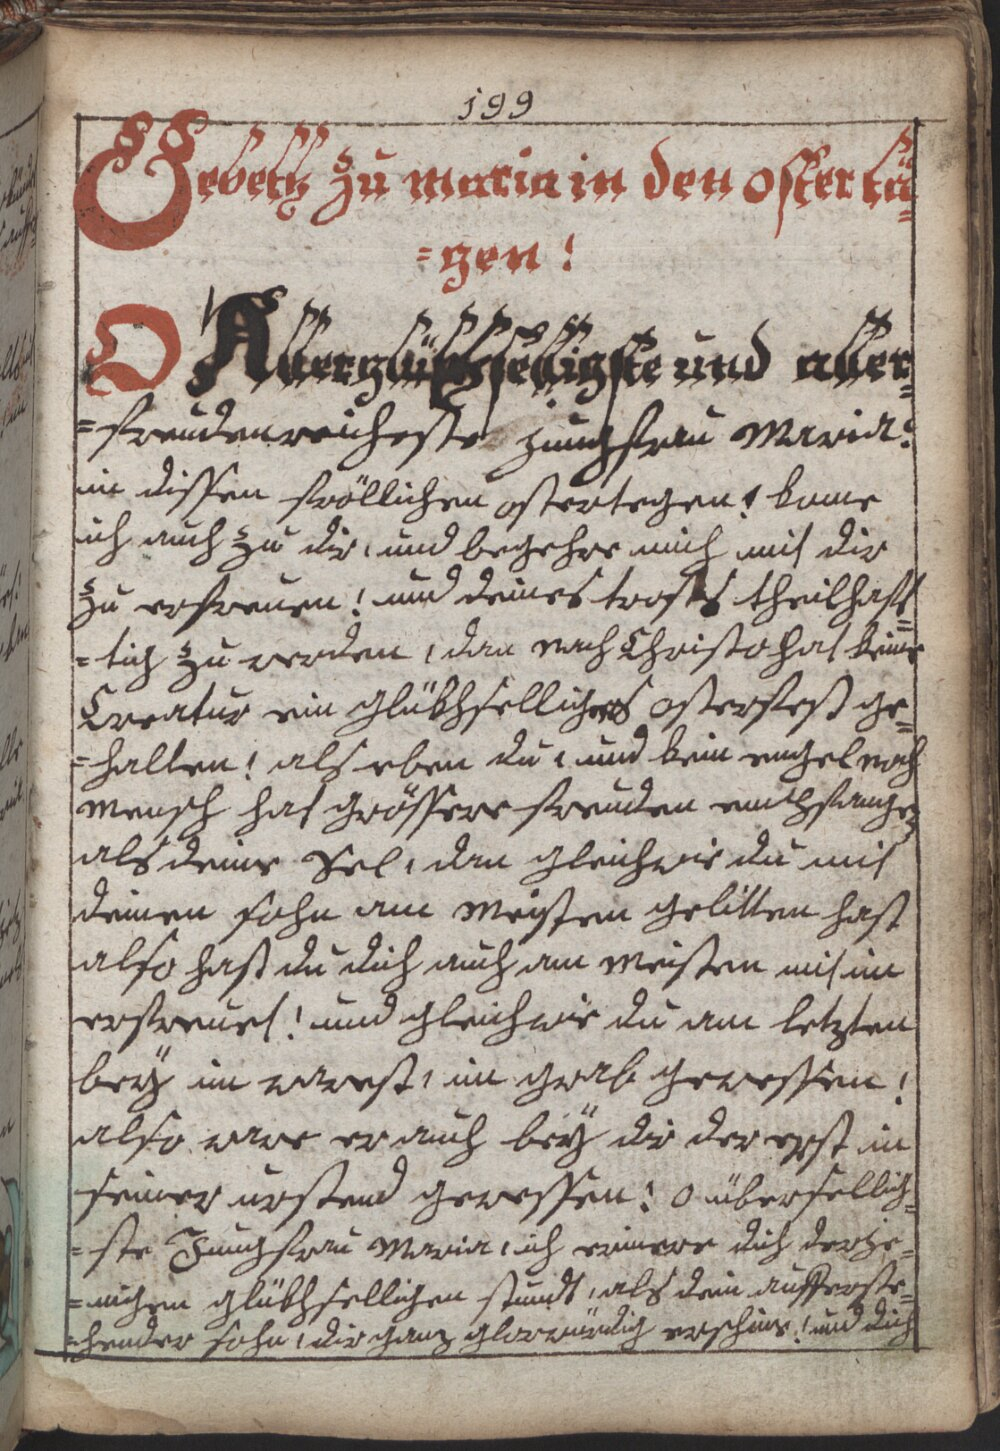 199
Gebett zu maria in den oster tä=
=gen!
O Allerglükhselligste und aller=
=freudenreicheste jungfrau Maria!
in dissen fröllichen ostertegen! kome
ich auch zu dir, und begehre mich mit dir
zu erfreuen! und deines trosts theilhaff=
=tig zu werden, dan nach Christo hat keine
Creatur ein glükhselligers osterfest ge=
=halten! als eben du, und kein engel noch
Mensch hat grössere freuden empfangen
als deine Sel, dan gleich wie du mit
deinen sohn am Meisten gelitten hast
also hast du dich auch am Meisten mit im
erfreuet! und gleich wie du am letzten
bey im warest, im grab gewessen!
also ware er auch bey dir der erst in
seiner urstend gewessen! o übersellig=
=ste Jungfrau Maria, ich erinere dich derje=
=nigen glükhselligen stundt, als dein aufferste=
=hender sohn, dir ganz glorwürdig erschine! und dich